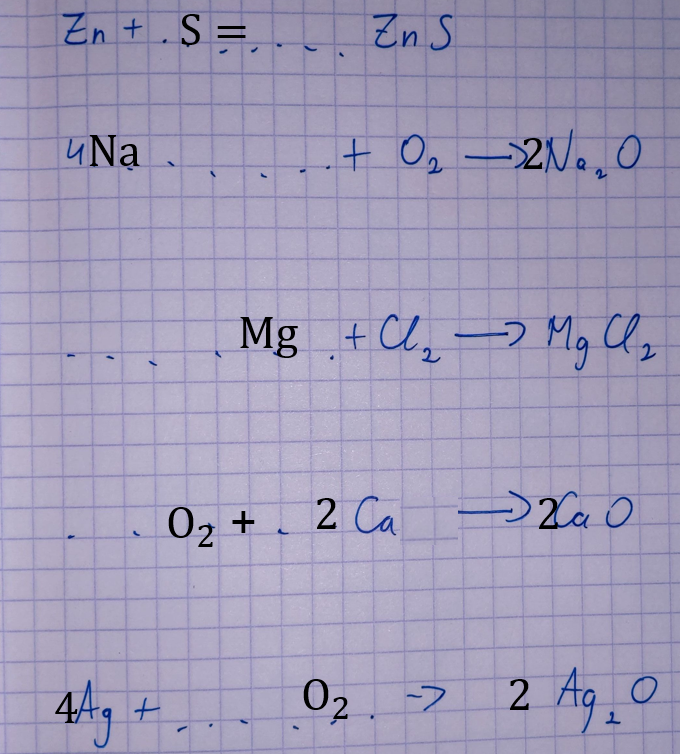 Zn + . S = . . . . ZnS
4Na . . . . . + O₂ → 2Na₂O
. . . . Mg . + Cl₂ → MgCl₂
. . O₂ + . 2 Ca → 2CaO
4Ag + . . . . O₂ . → 2 Ag₂O